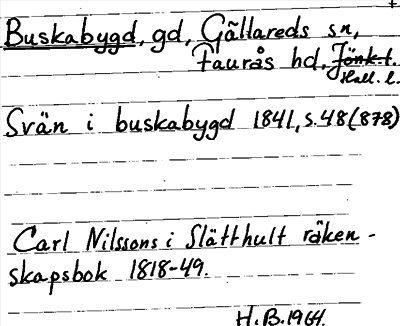 Buskabygd, gd, Gällareds sn,
Faurås hd. Jönk.l.
Hall. l.
Svän i buskabygd 1841, s.48(878)
Carl Nilssons i Slätthult räken-
skapsbok 1818-49.
H.B.1964.